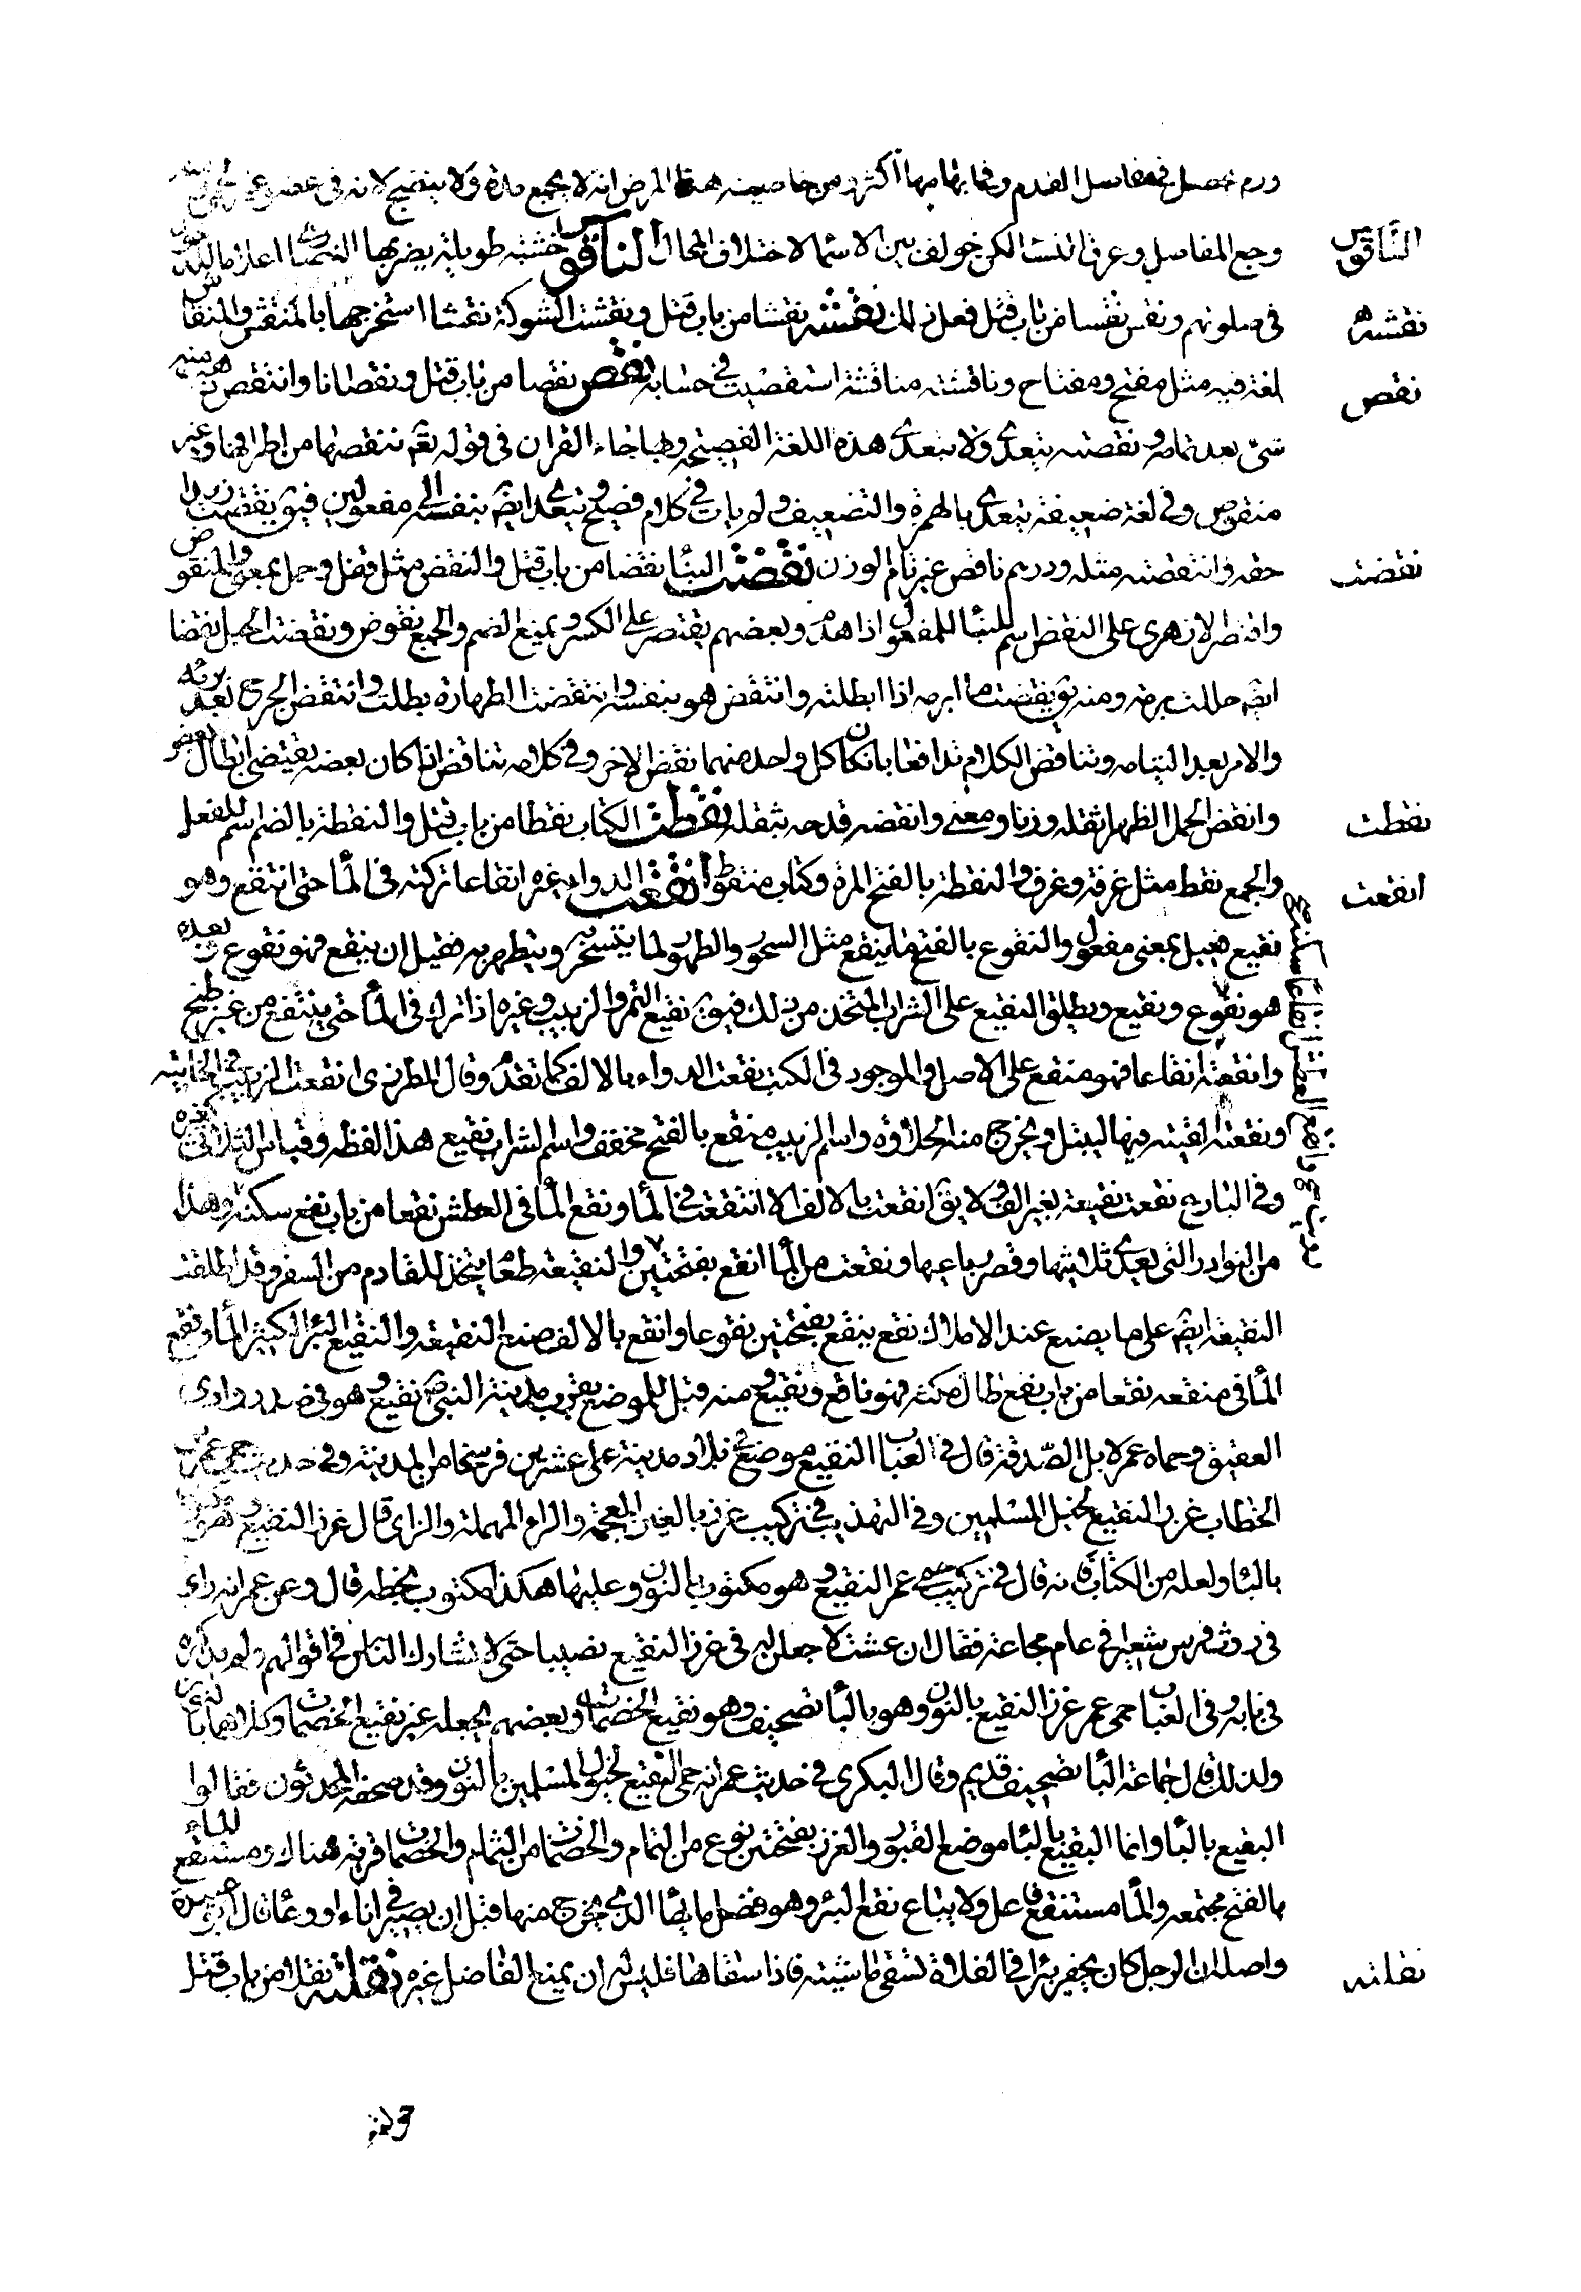 ورم يحصل في مفاصل القدم وفي ابهامها أكثر ومن خاصيته هذا المرض انه لا يجمع مدة ولا ينضج لانه في عضو غير لحمي
الناقوس
وجع المفاصل وعرق النسا لكن خولف بين الاسماء لاختلاف المحال الناقوس خشبة طويلة يضربها النصارى اعلاما للدخول
نقشه
في صلوتهم ونقس نقسا من باب قتل فعل ذلك نقشه نقشا من باب قتل ونقشت الشوكة نقشا استخرجتها بالمنقش والمنقاش
نقص
لغة فيه مثل مفتح ومفتاح وناقشته مناقشة استقصيت في حسابه نقص نقصا من باب قتل ونقصانا وانتقص ذهب منه
شئ بعد تمامه ونقصته يتعدى ولا يتعدى هذه اللغة الفصيحة وبها جاء القران في قوله تعم ننقصها من اطرافها وغير
منقوص وفي لغة ضعيفة يتعدى بالهمزة والتضعيف ولم يات في كلام فصيح ويتعدى ايضا بنفسه الى مفعولين فيق نقصت زيدا
نقضت
حقه وانتقصته مثله ودرهم ناقص غير تام الوزن نقضت البنا نقضا من باب قتل والنقض مثل قفل وحمل بمعنى المنقوض
واقتصر الازهرى على النقض اسم للبنا المفعول اذا هدم وبعضهم يقتصر على الكسر ويمنع الضم والجمع نقوض ونقضت الحبل نقضا
ايضا حللت برمه ومنه يق نقضت ما ابرمه اذا ابطلته وانتقض هو بنفسه وانتقضت الطهارة بطلت وانتقض الجرح بعد برئه
والامر بعد التيامه وتناقض الكلام تدافعا بان كان كل واحد منهما نقض الاخر وفي كلامه تناقض اذا كان بعضه يقتضى ابطال بعض
نقطت
وانقض الحمل الظهر اثقله وزنا ومعنى وانقضه قدحه بثقله نقطت الكتاب نقطا من باب قتل والنقطة بالضم اسم للفعل
انقعت
والجمع نقط مثل غرفة وغرف والنقطة بالفتح المرة وكتاب منقوط انقعت الدواء وغيره انقاعا تركته في الماء حتى انتقع وهو
نقيع فعيل بمعنى مفعول والنقوع بالفتح ما ينقع مثل السحور والطهور لما يتسحر به ويتطهر به فقيل ان ينقع فهو نقوع وبعده
هو نقوع ونقيع ويطلق النقيع على الشراب المتخذ من ذلك فيق نقيع التمر والزبيب وغيره اذا ترك في الماء حتى ينتقع من غير طبخ
وانقعته انقاعا فهو منقع على الاصل والموجود في الكتب نقعت الدواء بالالف كما تقدم وقال المطرزى انقعت الزبيب في الخابية
ونقعته القيته فيها ليبتل ويخرج منه الحلاوة واسم الزبيب منقع بالفتح مخفف واسم الشراب نقيع هذا لفظه وقياس الثلاثى
وفي البارع نقعت نقيعة بغير الف ولا يق انقعت بالالف الا انتقعت في الماء ونقع الماء في العطش نقعا من باب نفع سكنه وهذا
من النوادر التى يعدى ثلاثيها وقصر رباعيها ونقعت من الماء انقع بفتحتين والنقيعة طعام يتخذ للقادم من السفر وقد اطلقت
النقيعة ايضا على ما يصنع عند الاملاك نقع ينقع بفتحتين نقوعا وانقع بالالف صنع النقيعة والنقيع البئر الكثير الماء ونقع
الماء في منقعه نقعا من باب نفع طال مكثه فهو ناقع ونقيع ومنه قيل للموضع بقرب مدينة النبي ص نقيع وهو في صدر وادى
العقيق وحماه عمر لابل الصدقة قال في العباب النقيع موضع في بلاد مدينة على عشرين فرسخا من المدينة وفي حديث حمى عمر بن
الخطاب غرز النقيع لخيل المسلمين وفي التهذيب في تركيب غرز بالغين المعجمة والراء المهملة والزاى قال غرز النقيع
بالباء ولعله من الكتاب فانه قال في تركيب حمى عمر النقيع وهو مكتوب بالنون وعليها هكذا مكتوب بخطه قال وعن عمر انه راى
في روث فرس شعيرا في عام مجاعة فقال ان عشت لاجعلن له في غرز النقيع نصيبا حتى لا تشارك الناس في اقواتهم ولم يذكره
في بابه وفي العباب حمى عمر غرز النقيع بالنون وهو بالباء تصحيف وهو نقيع الخضمات وبعضهم يجعله غير نقيع الخضمات وكلاهما بالنون
ولذلك قال جماعة الباء تصحيف قديم وقال البكرى في حديث عمر انه حمى النقيع لخيول المسلمين بالنون وقد صحفه المحدثون فقالوا
البقيع بالباء وانما البقيع بالباء موضع القبور والغرز بفتحتين نوع من الثمام والخضمات من الثمام والخضمات قرية هناك ومستنقع الماء
بالفتح مجتمعه والماء مستنقع فاعل ولا يباع نقع البئر وهو فضل مائها الذى يخرج منها قبل ان يصير في اناء او وعاء قال ابو عبيدة
نقلته
واصله ان الرجل كان يحفر بئرا في الفلاة تسقى ماشيته فاذا سقاها فليس له ان يمنع الفاضل غيره نقلته نقلا من باب قتل